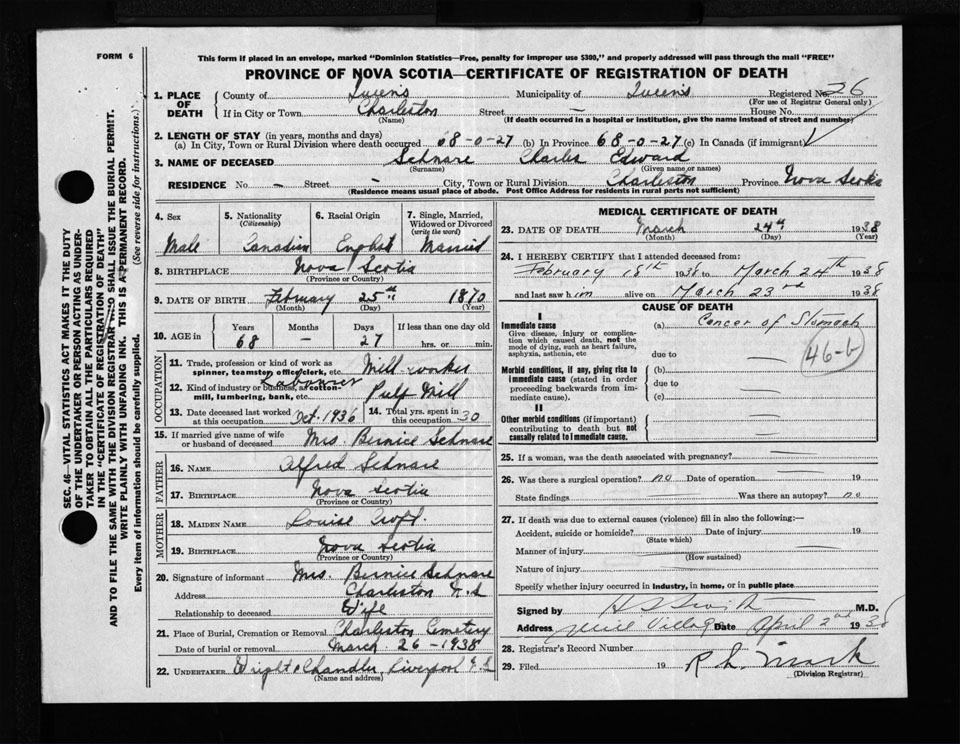 FORM 6
This form if placed in an envelope, marked "Dominion Statistics—Free, penalty for improper use $300," and properly addressed will pass through the mail "FREE"
PROVINCE OF NOVA SCOTIA—CERTIFICATE OF REGISTRATION OF DEATH
1. PLACE OF DEATH County of Queens Municipality of Queens Registered No. 26
(For use of Registrar General only)
If in City or Town Charleston Street — House No.
(Name) (If death occurred in a hospital or institution, give the name instead of street and number)
2. LENGTH OF STAY (in years, months and days)
(a) In City, Town or Rural Division where death occurred 68-0-27 (b) In Province 68-0-27 (c) In Canada (if immigrant)
3. NAME OF DECEASED Schnare Charles Edward
(Surname) (Given name or names)
RESIDENCE No. — Street — City, Town or Rural Division Charleston Province Nova Scotia
(Residence means usual place of abode. Post Office Address for residents in rural parts not sufficient)
4. Sex 5. Nationality (Citizenship) 6. Racial Origin 7. Single, Married, Widowed or Divorced (write the word)
Male Canadian English Married
8. BIRTHPLACE Nova Scotia
(Province or Country)
9. DATE OF BIRTH February 25th 1870
(Month) (Day) (Year)
10. AGE in Years Months Days If less than one day old
68 — 27 hrs. or min.
OCCUPATION
11. Trade, profession or kind of work as spinner, teamster, office clerk, etc. Mill-worker
Labourer
12. Kind of industry or business, as cotton-mill, lumbering, bank, etc. Pulp Mill
13. Date deceased last worked at this occupation Oct. 1936 14. Total yrs. spent in this occupation 30
15. If married give name of wife or husband of deceased Mrs. Bernice Schnare
FATHER
16. NAME Alfred Schnare
17. BIRTHPLACE Nova Scotia
(Province or Country)
MOTHER
18. MAIDEN NAME Louise Croft.
19. BIRTHPLACE Nova Scotia
(Province or Country)
20. Signature of informant Mrs. Bernice Schnare
Address Charleston N.S
Relationship to deceased Wife
21. Place of Burial, Cremation or Removal Charleston Cemetery
Date of burial or removal March 26-1938
22. UNDERTAKER Wright & Chandler, Liverpool N.S
(Name and address)
MEDICAL CERTIFICATE OF DEATH
23. DATE OF DEATH March 24th 1938
(Month) (Day) (Year)
24. I HEREBY CERTIFY that I attended deceased from:
February 18th 1938 to March 24th 1938
and last saw him alive on March 23rd 1938
CAUSE OF DEATH
I
Immediate cause (a) Cancer of Stomach
Give disease, injury or complication which caused death, not the mode of dying, such as heart failure, asphyxia, asthenia, etc
due to
46-b
Morbid conditions, if any, giving rise to immediate cause (stated in order proceeding backwards from immediate cause).
(b)
due to
(c)
II
Other morbid conditions (if important) contributing to death but not causally related to immediate cause.
25. If a woman, was the death associated with pregnancy?
26. Was there a surgical operation? no Date of operation 19
State findings Was there an autopsy? no
27. If death was due to external causes (violence) fill in also the following:—
Accident, suicide or homicide? Date of injury 19
(State which)
Manner of injury
(How sustained)
Nature of injury
Specify whether injury occurred in industry, in home, or in public place
Signed by Smith M.D.
Address Mill Village Date April 2nd 1938
28. Registrar's Record Number
29. Filed 19 R. L. Mack
(Division Registrar)
SEC. 46—VITAL STATISTICS ACT MAKES IT THE DUTY
OF THE UNDERTAKER OR PERSON ACTING AS UNDER-
TAKER TO OBTAIN ALL THE PARTICULARS REQUIRED
IN THE "CERTIFICATE OF REGISTRATION OF DEATH"
AND TO FILE THE SAME WITH THE DIVISION REGISTRAR WHO SHALL ISSUE THE BURIAL PERMIT.
WRITE PLAINLY WITH UNFADING INK. THIS IS A PERMANENT RECORD.
Every item of information should be carefully supplied. (See reverse side for instructions.)